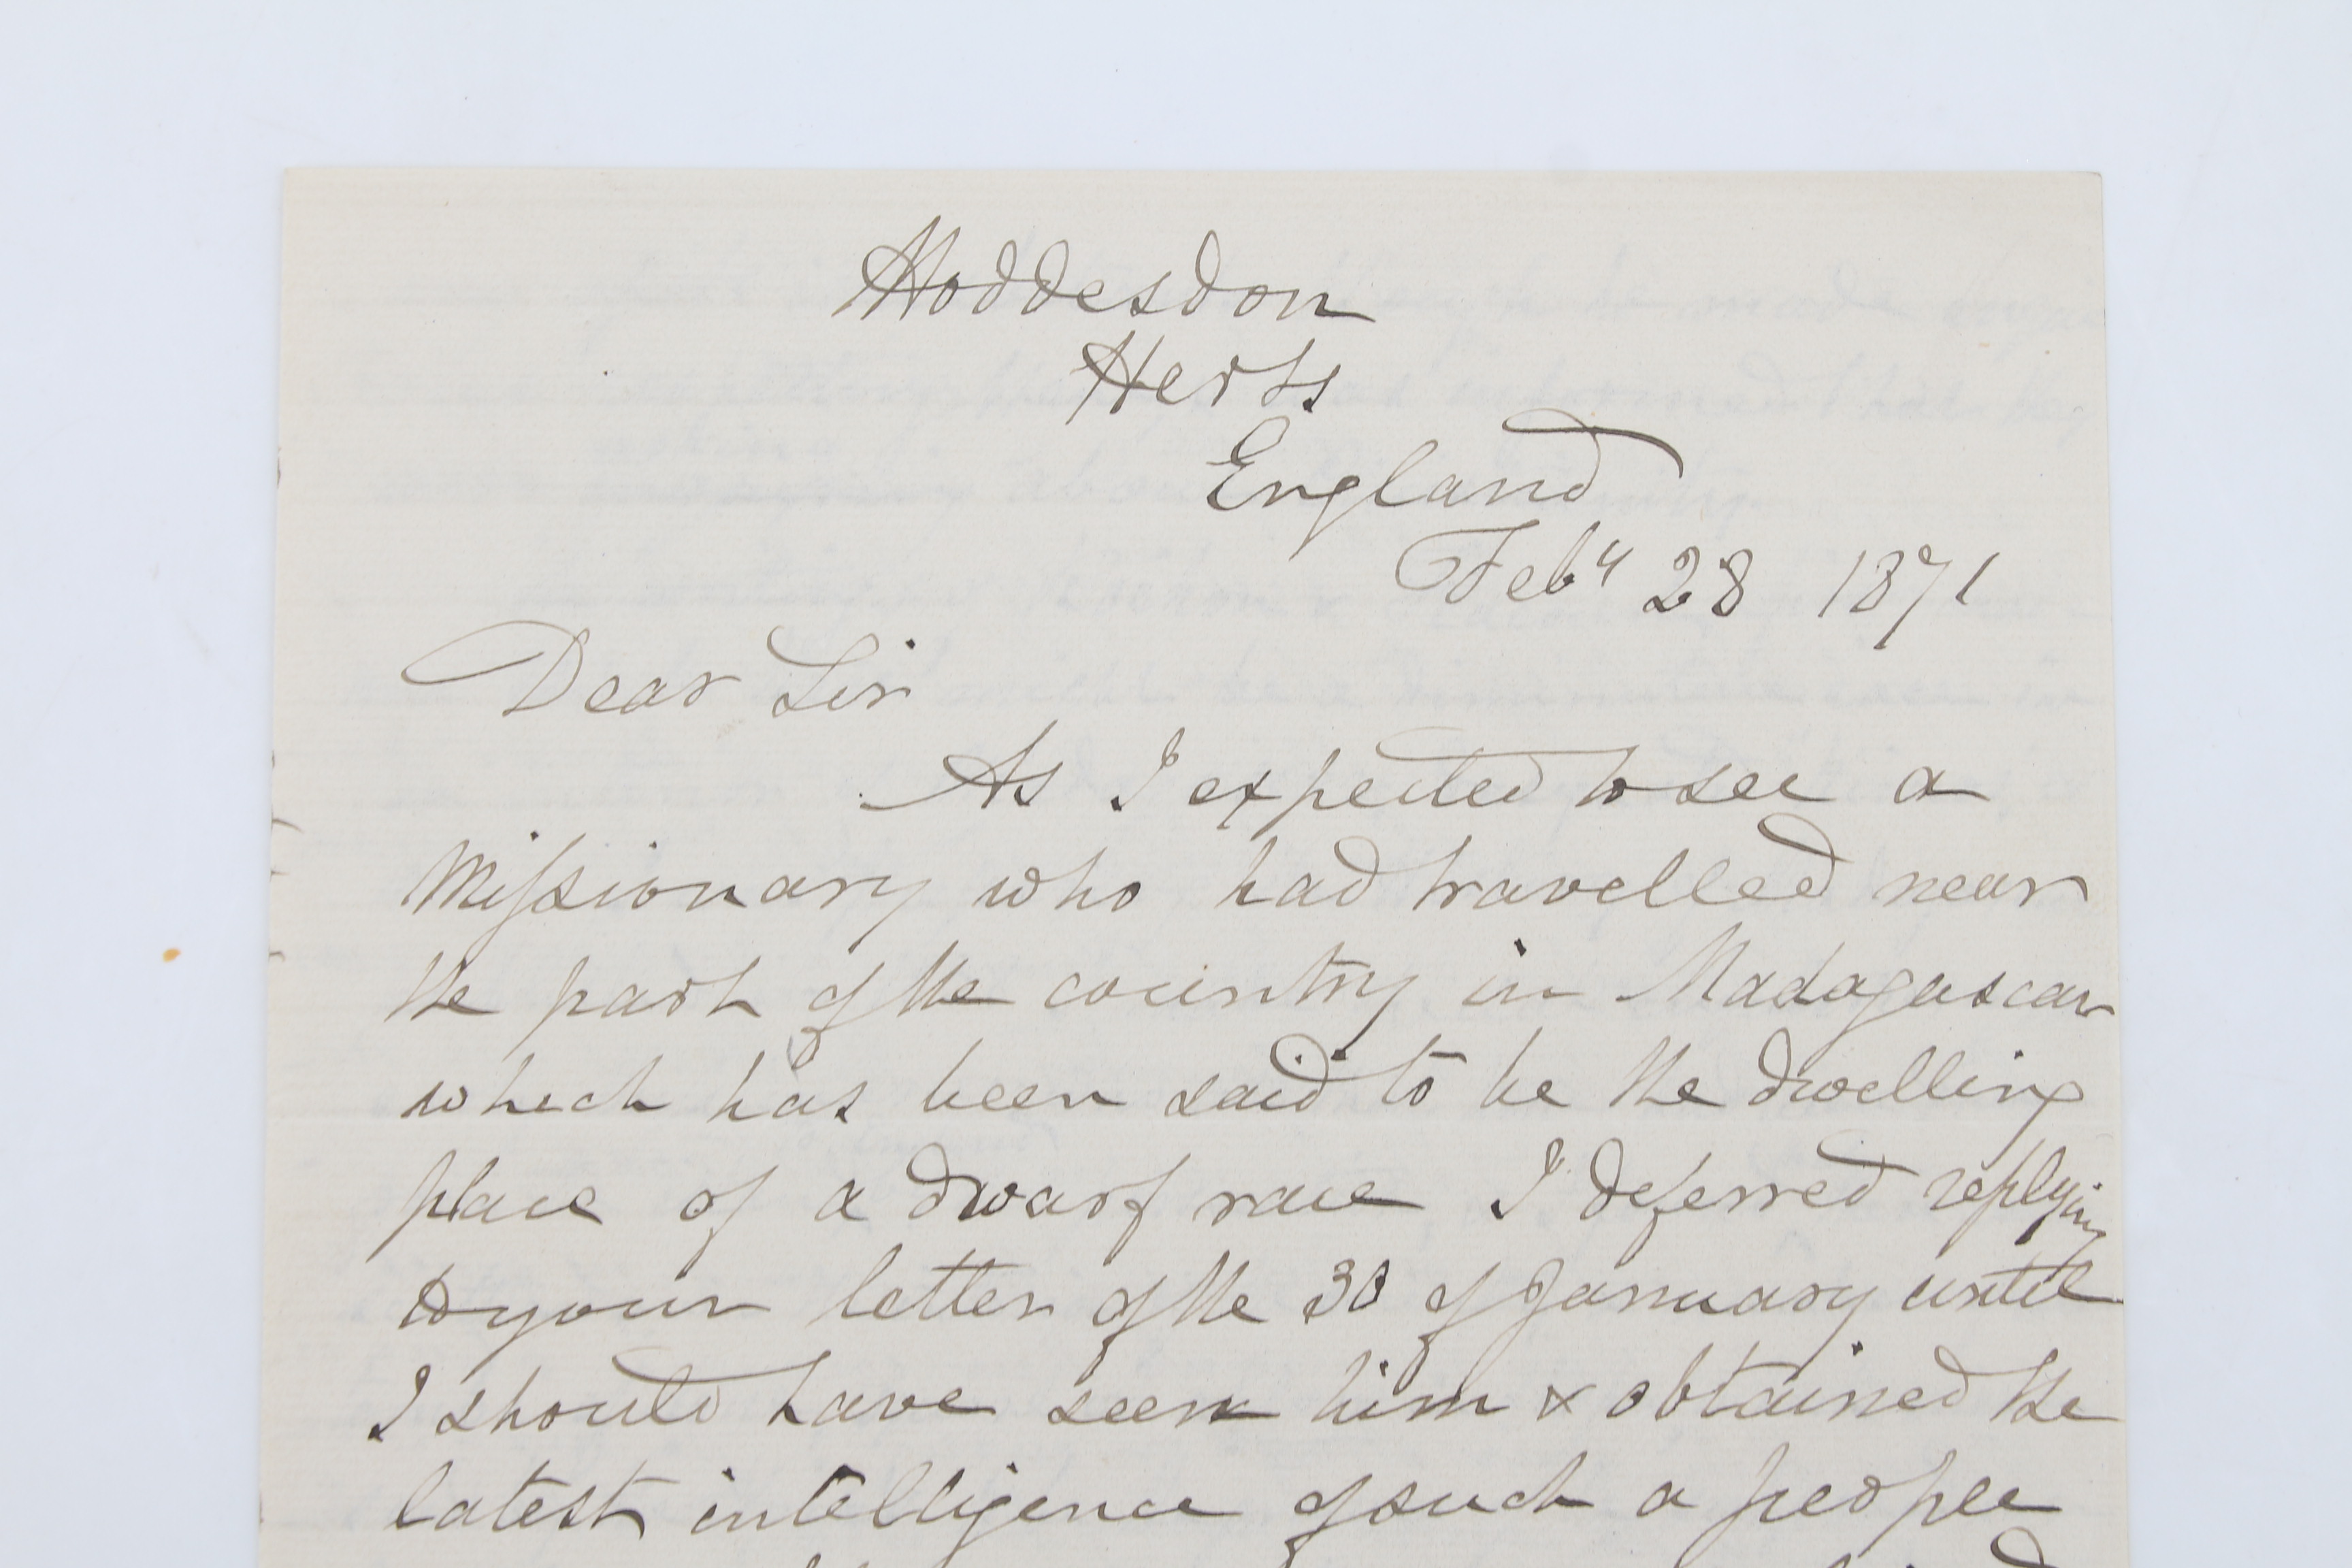 Hoddesdon
Herts
England
Feby 28 1871
Dear Sir
As I expected to see a
Missionary who had travelled near
the part of the country in Madagascar
which has been said to be the dwelling
place of a dwarf race I deferred replying
to your letter of the 30 of January until
I should have seen him & obtained the
latest intelligence of such a people